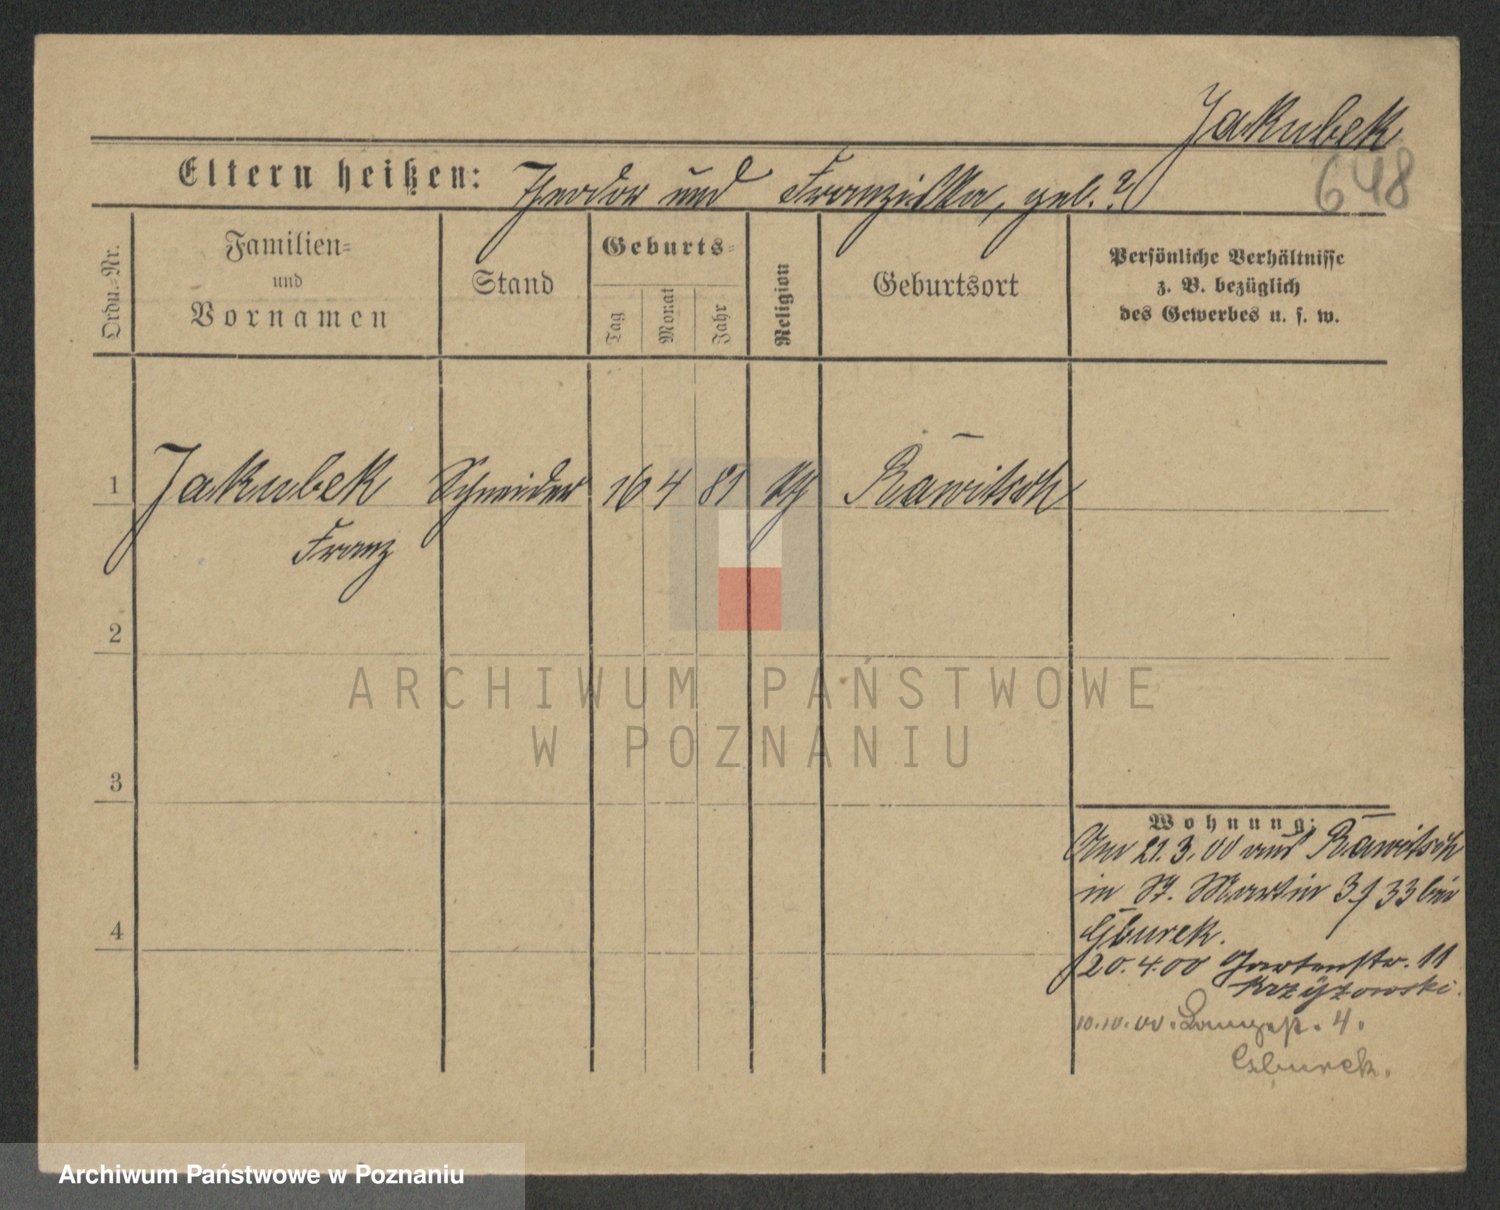 Jakubek
648
Eltern heißen: Theodor und Franziska, geb. ?
Ordn.-Nr.
Familien-
und
Vornamen
Stand
Geburts-
Tag
Monat
Jahr
Religion
Geburtsort
Persönliche Verhältnisse
z. B. bezüglich
des Gewerbes u. s. w.
1 Jakubek Schneider 16 4 81 Rawitsch
Franz
2
3
4
ARCHIWUM PAŃSTWOWE
W POZNANIU
Wohnung:
21.3.00 aus Rawitsch
in St. Martin 33 bei
Gburek.
20.4.00 Gartenstr. 11
Krzyzowski.
Langestr. 4.
Gburek.
Archiwum Państwowe w Poznaniu